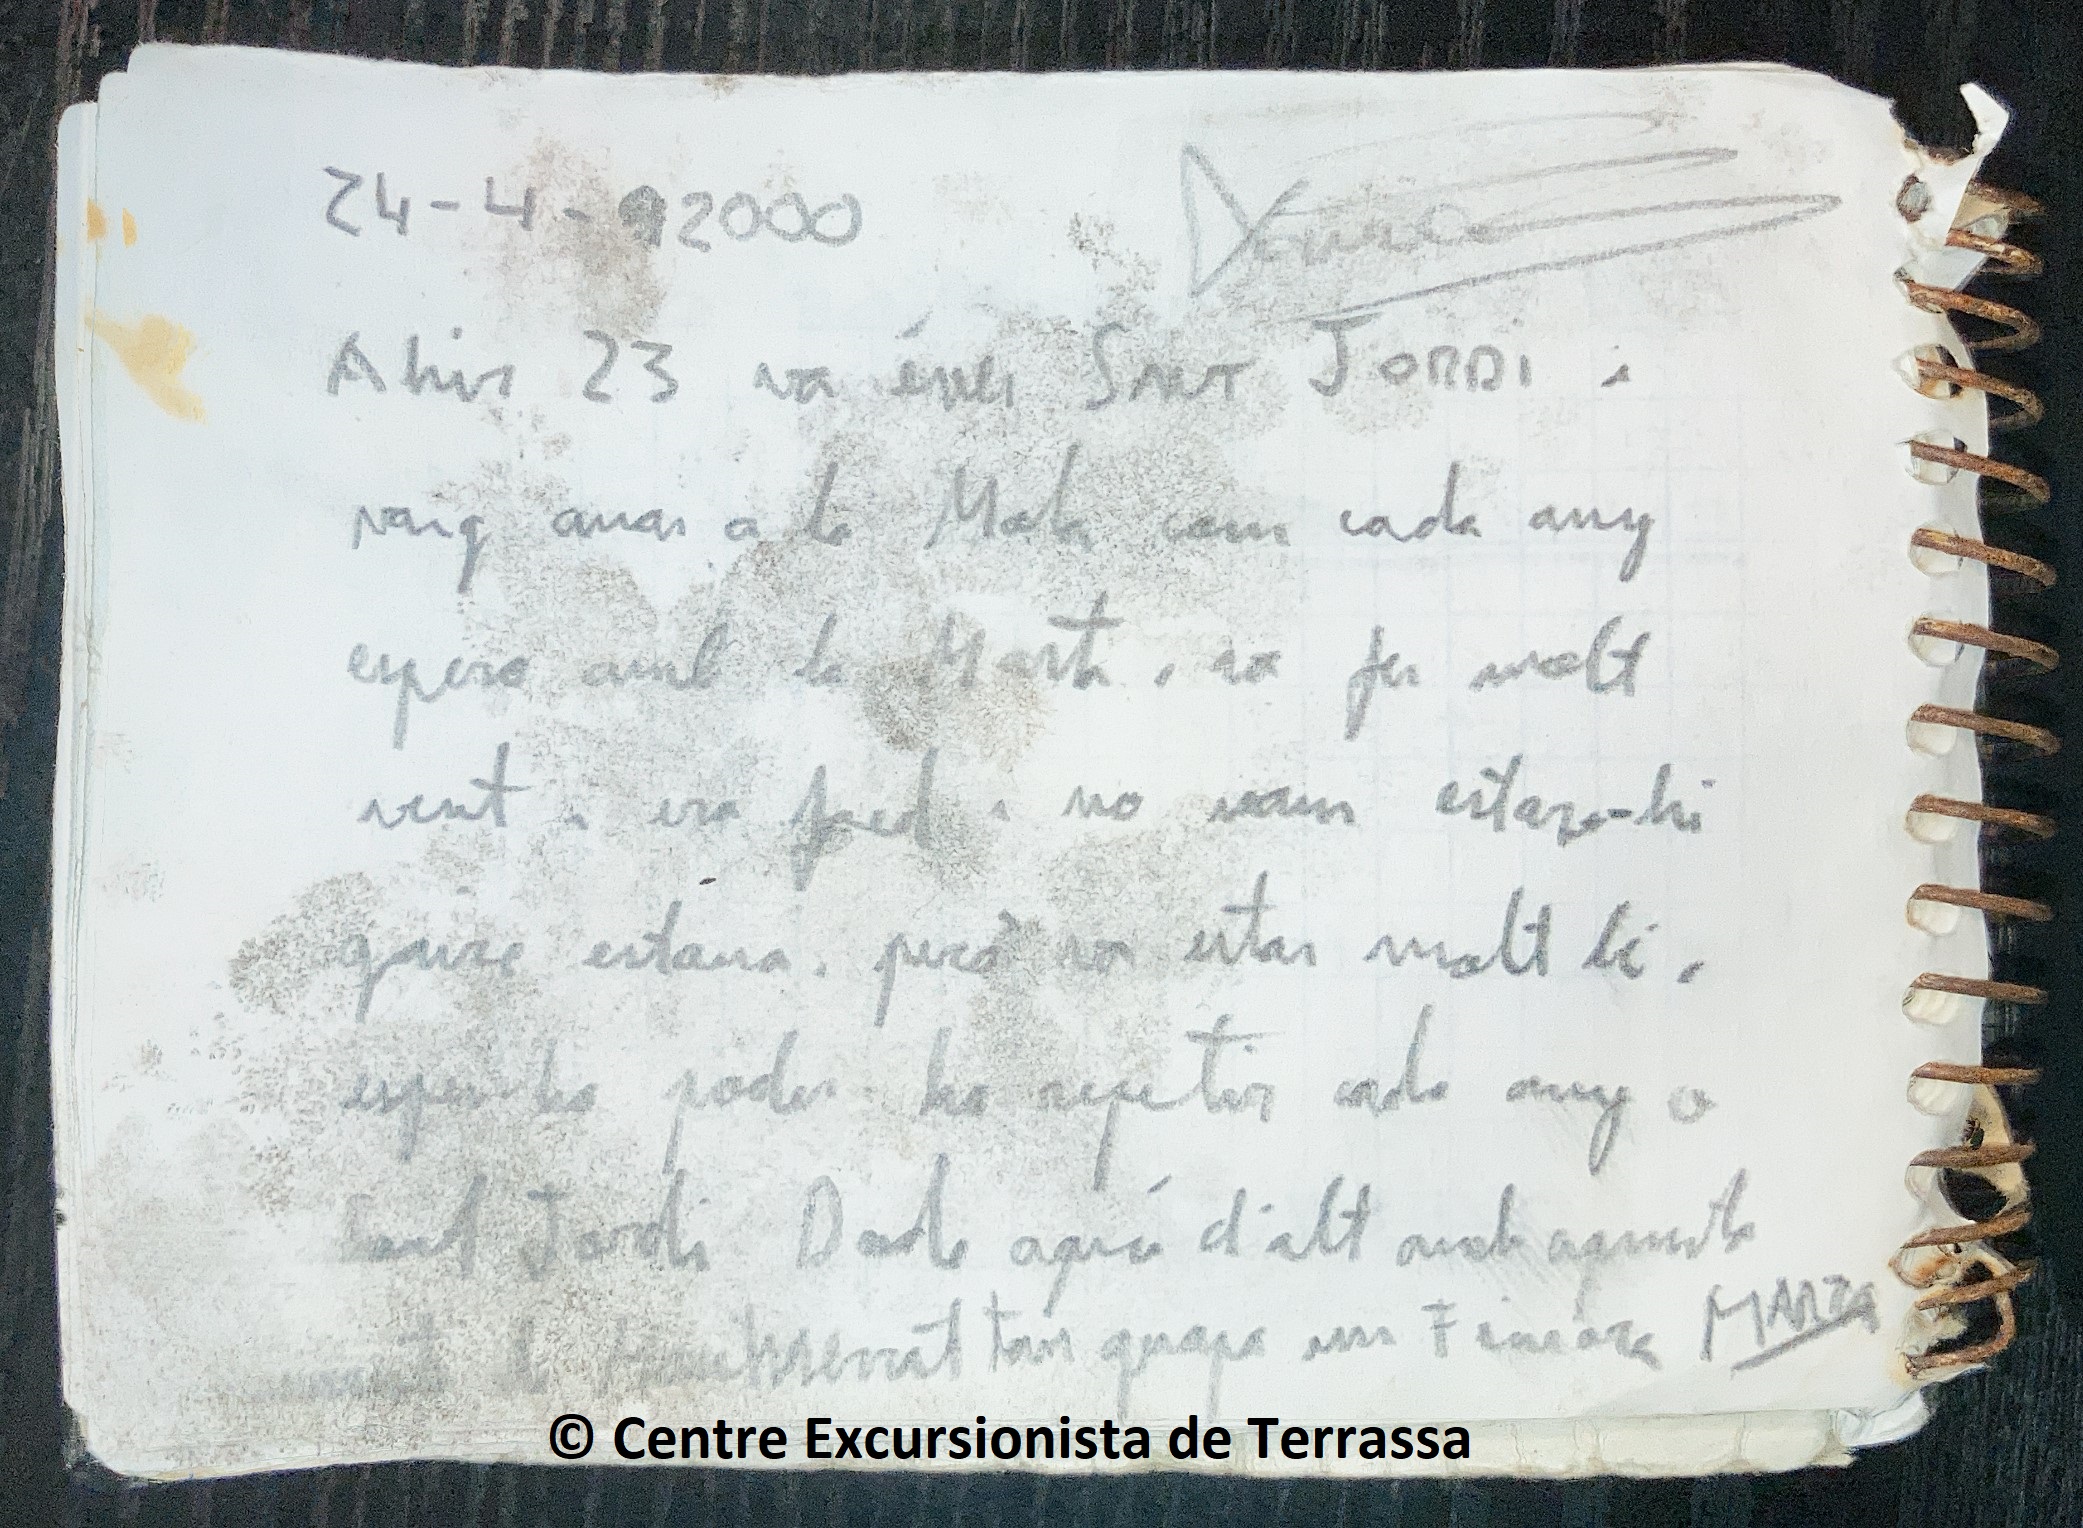 24-4-2000
Ahir 23 va ésser SANT JORDI i
vaig anar a la Mola com cada any
espero amb la Marta, va fer molt
vent i era fred i no vam estare-hi
gaire estona, però va estar molt bé,
espero poder ho repetir cada any a
Sant Jordi Desde aquí d'alt amb aquesta
Montserrat tan guapa ens MARTA
© Centre Excursionista de Terrassa